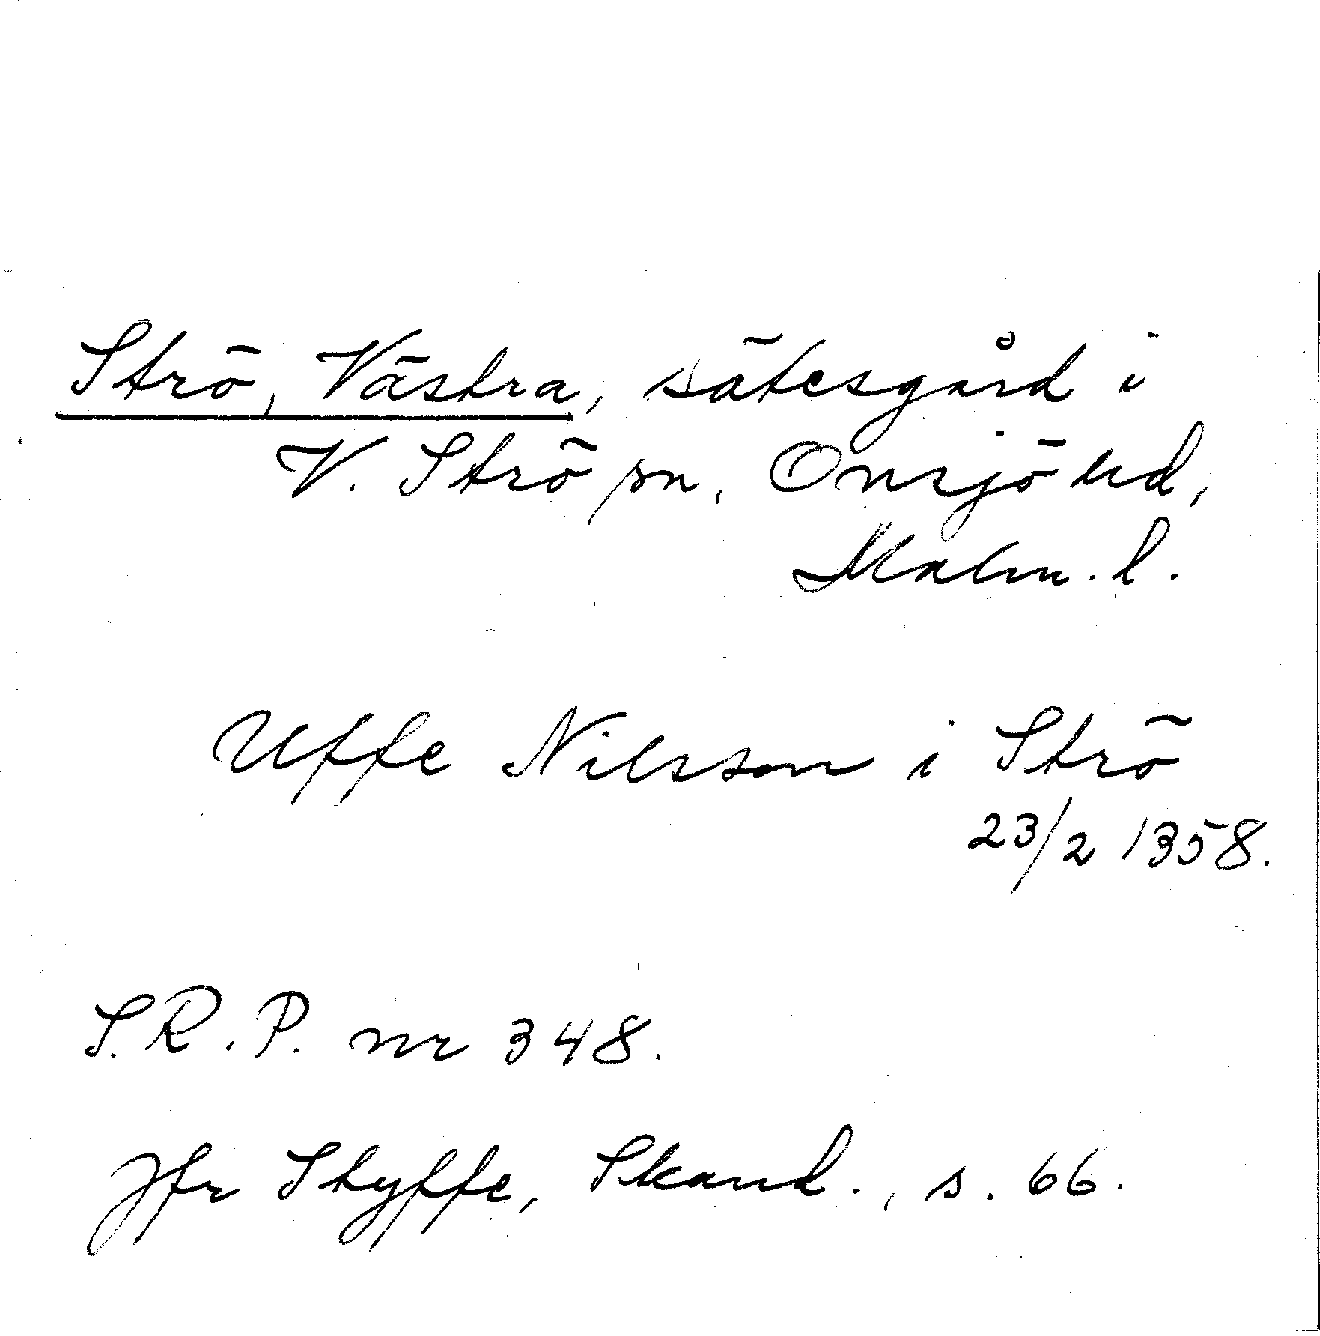 Strö, Västra, sätesgård i
V. Strö sn, Onsjö hd,
Malm. l.
Uffe Nilsson i Strö
23/2 1358.
S.R.P. nr 348.
Jfr Styffe, Skand., s. 66.